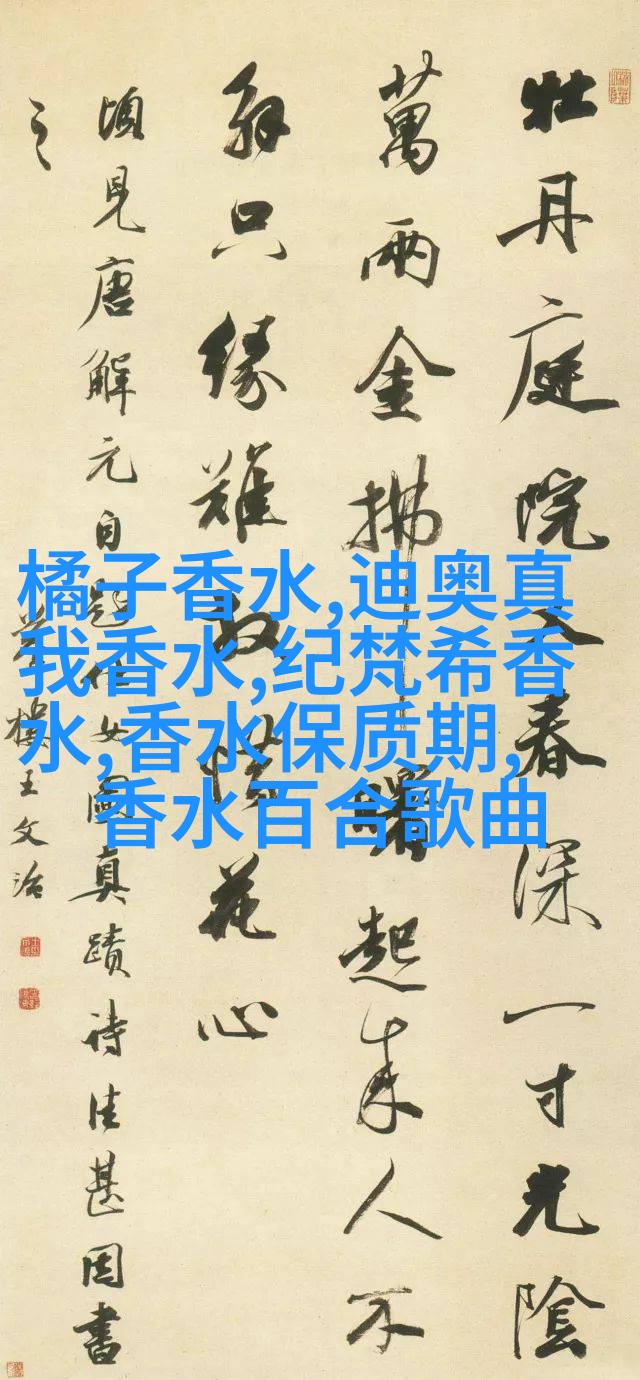 牡丹庭院又春深一寸光陰
萬兩金拂曙起來人不
解只緣難放惜花心
頃見唐解元自題仕女圖真蹟詩佳甚因書
之
夢樓王文治
橘子香水,迪奥真
我香水,纪梵希香
水,香水保质期,
香水百合歌曲